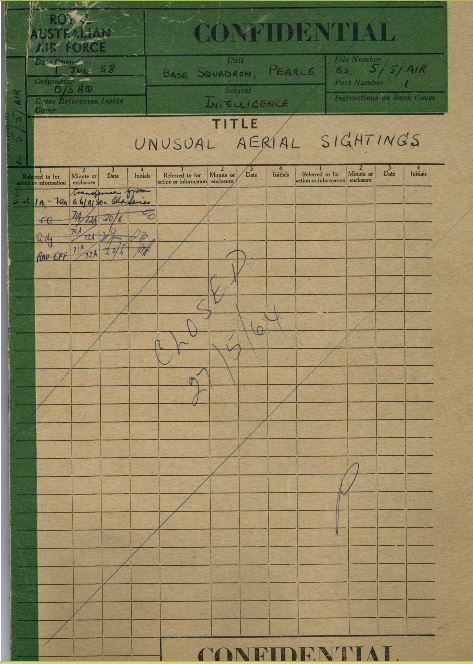 ROYAL
AUSTRALIAN
AIR FORCE
CONFIDENTIAL
Date Opened
JUL 58
Originator
B/SHQ
Cross References Inside
Cover
Unit
BASE SQUADRON, PEARCE
Subject
INTELLIGENCE
File Number
BS 5/5/AIR
Part Number 1
Instructions on Back Cover
5/5/AIR
TITLE
UNUSUAL AERIAL SIGHTINGS
1 2 3 4 1 2 3 4 1 2 3 4
Referred to for action or information Minute or enclosure Date Initials Referred to for action or information Minute or enclosure Date Initials Referred to for action or information Minute or enclosure Date Initials
transfered from
1A - 70A
CO 71A 72A 20/5
Adj 71A 72A
71A 72A 27/5
CLOSED
27/5/64
CONFIDENTIAL